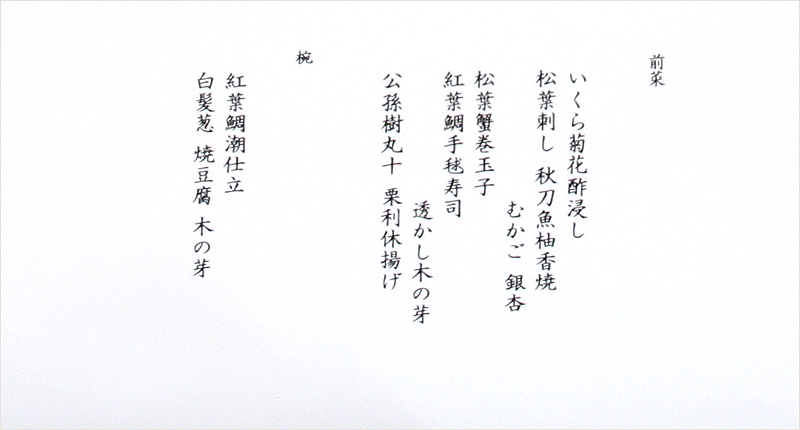 前菜
いくら菊花酢浸し
松葉刺し 秋刀魚柚香焼
むかご 銀杏
松葉蟹巻玉子
紅葉鯛手毬寿司
透かし木の芽
公孫樹丸十 栗利休揚げ
椀
紅葉鯛潮仕立
白髪葱 焼豆腐 木の芽